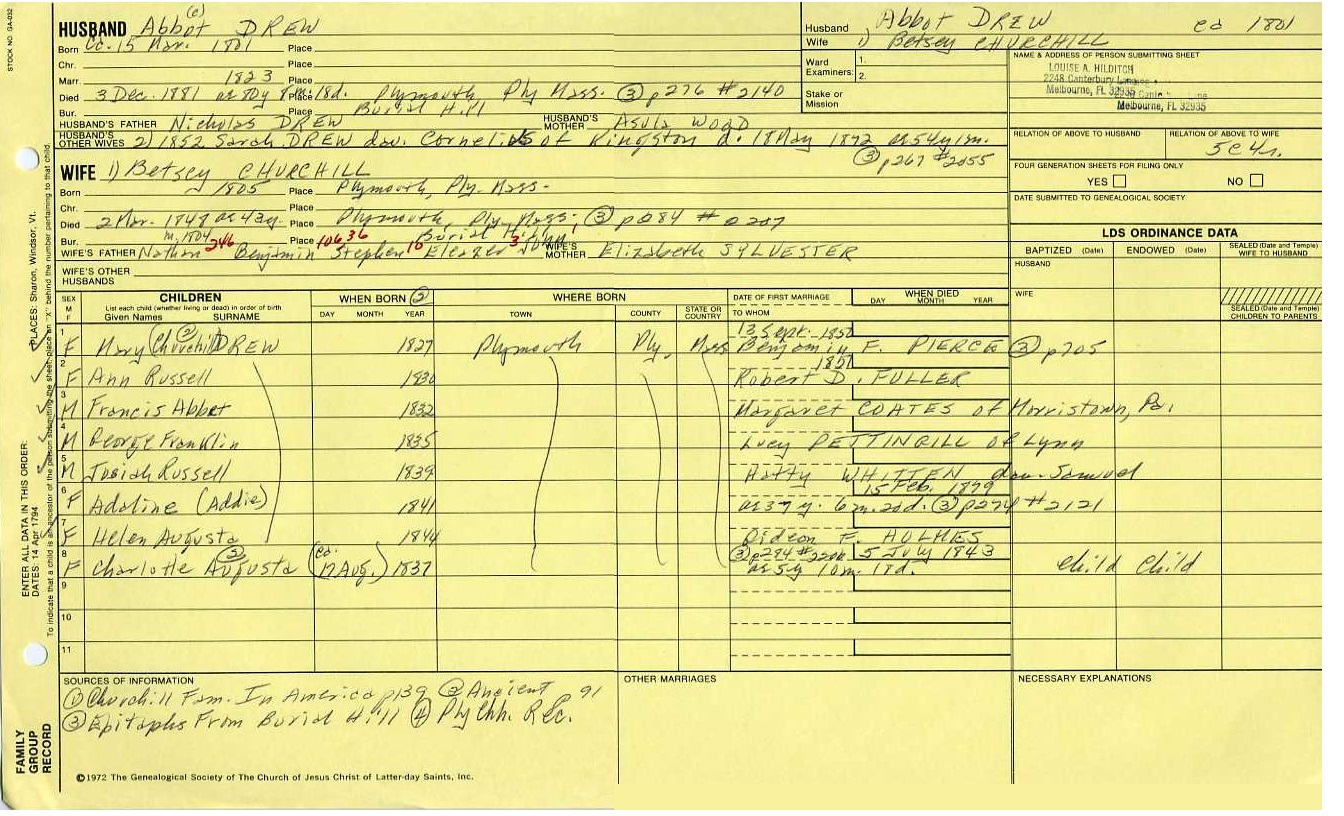 STOCK NO. GA-032
(c)
HUSBAND Abbot DREW
Born Ca. 15 Mar. 1801 Place
Chr. Place
Marr. 1823 Place
Died 3 Dec. 1881 ae 80y 8m 18d. Place Plymouth Ply Mass. ③ p276 #2140
Bur. Place Burial Hill
HUSBAND'S FATHER Nicholas DREW HUSBAND'S MOTHER WOOD
HUSBAND'S OTHER WIVES 2) 1852 Sarah DREW dau. Cornelius of Kingston d. 18 May 1872 ae 54y 1m.
③ p267 #2055
Husband Abbot DREW ca 1801
Wife 1) Betsey CHURCHILL
Ward Examiners: 1.
2.
Stake or Mission
NAME & ADDRESS OF PERSON SUBMITTING SHEET
LOUISE A. HILDITCH
2248 Canterbury
Melbourne, FL 32935
Melbourne, FL 32935
RELATION OF ABOVE TO HUSBAND
RELATION OF ABOVE TO WIFE
5C4r.
FOUR GENERATION SHEETS FOR FILING ONLY
YES NO
DATE SUBMITTED TO GENEALOGICAL SOCIETY
WIFE 1) Betsey CHURCHILL
Born 1805 Place Plymouth, Ply. Mass.
Chr. Place
Died 2 Mar. 1848 ae 43y. Place Plymouth, Ply Mass. ③ p084 #0207
Bur. m. 1804 Place Burial Hill
WIFE'S FATHER Nathan 246 Benjamin 106,36 Stephen 10 Eleazer 3 John 1 WIFE'S MOTHER Elizabeth SYLVESTER
WIFE'S OTHER HUSBANDS
LDS ORDINANCE DATA
BAPTIZED (Date) ENDOWED (Date) SEALED (Date and Temple) WIFE TO HUSBAND
HUSBAND
WIFE
SEALED (Date and Temple) CHILDREN TO PARENTS
SEX M F
CHILDREN
List each child (whether living or dead) in order of birth
Given Names SURNAME
WHEN BORN ②
DAY MONTH YEAR
WHERE BORN
TOWN COUNTY STATE OR COUNTRY
DATE OF FIRST MARRIAGE
TO WHOM
WHEN DIED
DAY MONTH YEAR
1 F Mary (Churchill) ② DREW 1827 Plymouth Ply. Mass 13 Sept. 1850 Benjamin F. PIERCE ③ p705
2 F Ann Russell 1830 1851 Robert D. FULLER
3 M Francis Abbot 1832 Margaret COATES of Morristown, Pa.
4 M George Franklin 1835 Lucy PETTINGILL of Lynn
5 M Josiah Russell 1839 Hatty WHITTEN dau. Samuel
6 F Adaline (Addie) 1841 15 Feb. 1879 ae 37y. 6m. 20d. ③ p274 #2121
7 F Helen Augusta 1844 Gideon F. HOLMES
8 F Charlotte Augusta ③ (ca. 17 Aug.) 1837 ③ p294 5 July 1843 ae 5y 10m. 18d. Child Child
9
10
11
SOURCES OF INFORMATION
① Churchill Fam. In America p139 ② Ancient 91
③ Epitaphs From Burial Hill ④ Ply Chh. Rec.
OTHER MARRIAGES
NECESSARY EXPLANATIONS
©1972 The Genealogical Society of The Church of Jesus Christ of Latter-day Saints, Inc.
FAMILY GROUP RECORD
ENTER ALL DATA IN THIS ORDER:
DATES: 14 Apr 1794
PLACES: Sharon, Windsor, Vt.
To indicate that a child is an ancestor of the person submitting the sheet, place an "X" behind the number pertaining to that child.